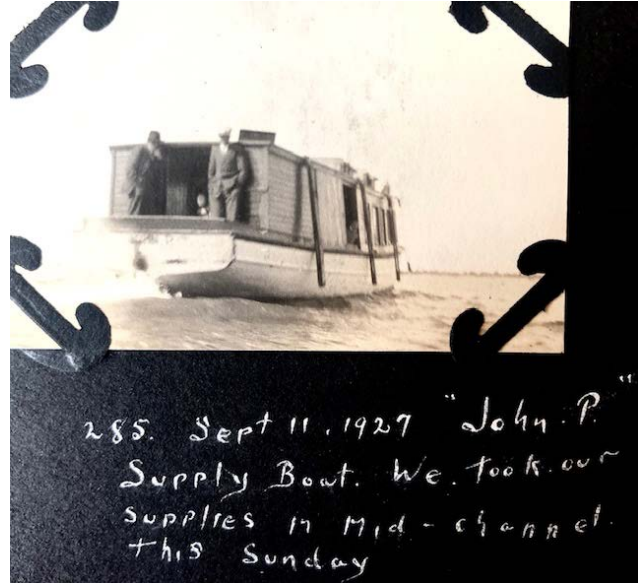 285. Sept 11, 1927 "John. P."
Supply Boat. We. took. our
supplies in Mid-channel.
this Sunday